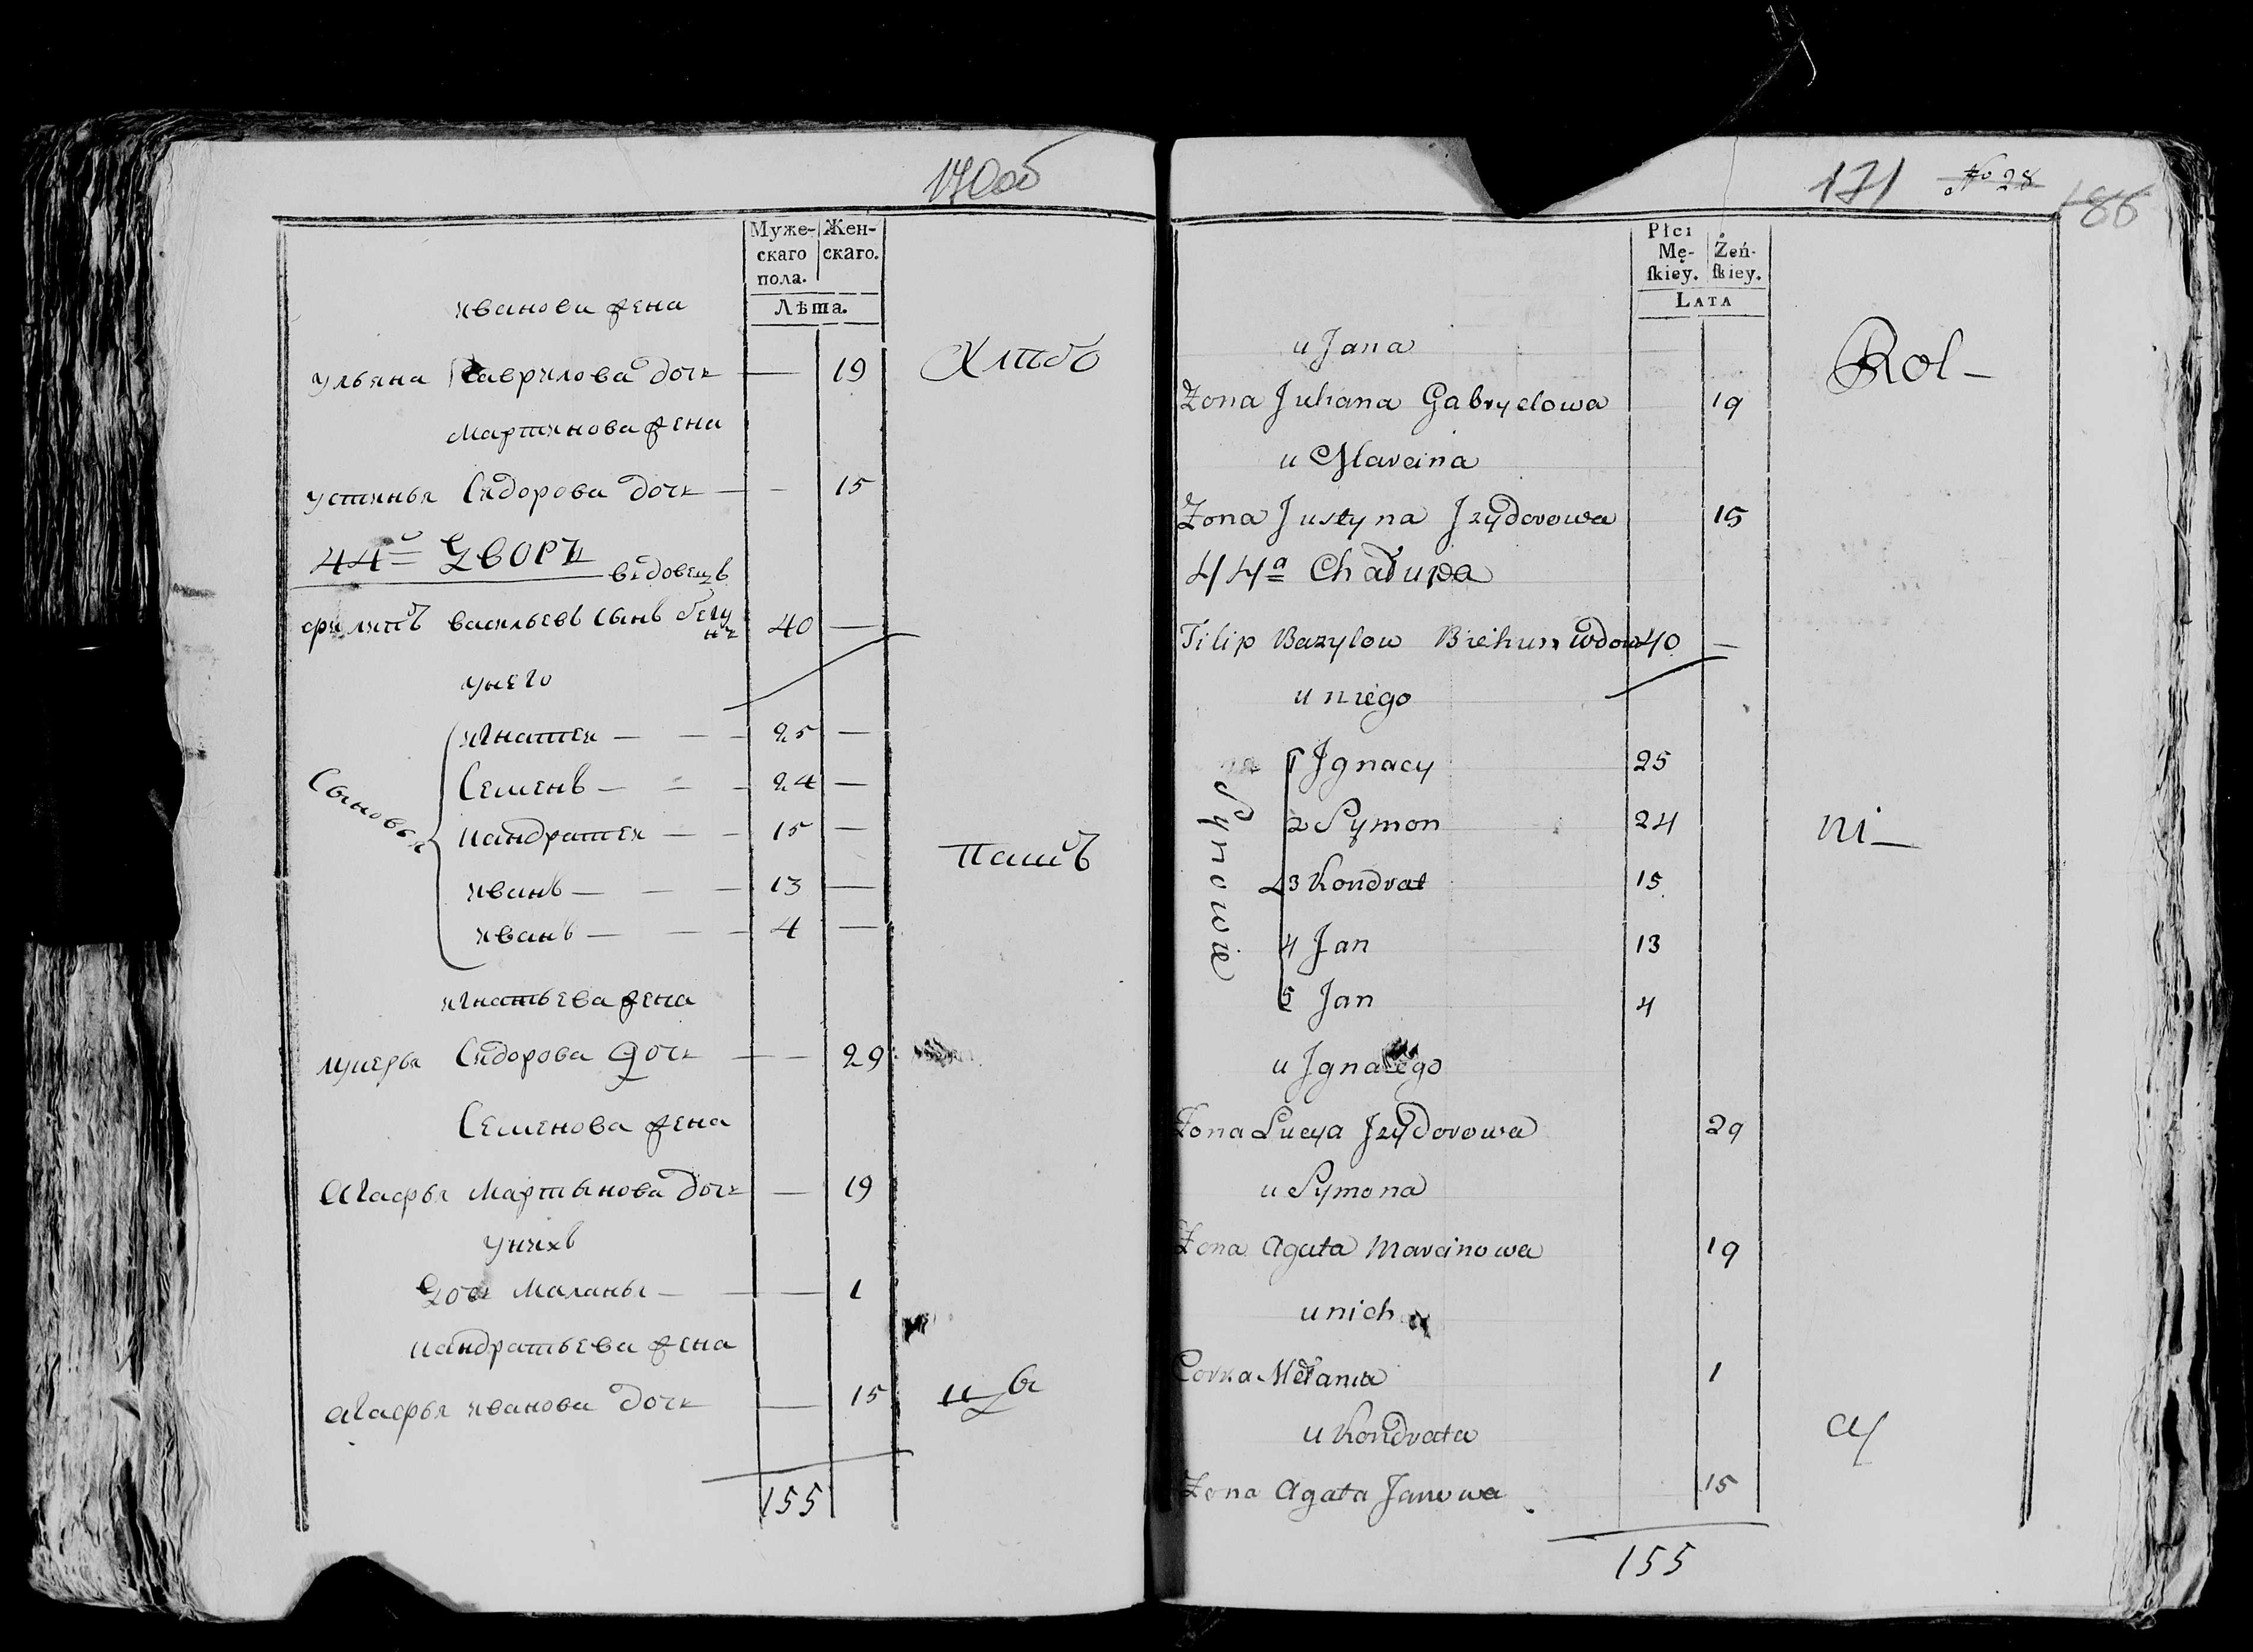 170об
Муже-
скаго
пола.
Жен-
скаго.
Лѣта.
ивановa жена
Ульяна Гаврилова дочь — 19
Хлѣбо
Мартинова жена
Устинья Сидорова дочь — — 15
44й дворъ
вдовецъ
Филипъ Васильевъ сынъ бегу
нъ 40 —
у него
Сыновья
Игнатей — — — 25 —
Семенъ — — — 24 —
Кандратей — — 15 —
Иванъ — — — 13 —
Иванъ — — — 4 —
паш
Игнатьева жена
Лукерья Сидорова дочь — — 29
Семенова жена
Агафья Мартынова дочь — 19
у нихъ
дочь Маланья — — — 1
Кандратьева жена
Агафья Иванова дочь — 15
цы
155
171 No 28
186
Płci
Mę-
ſkiéy.
Żeń-
ſkiey.
LATA
u Jana
Żona Juliana Gabryelowa 19
Rol–
u Marcina
Żona Justyna Jzydorowa 15
44a Chałupa
Filip Bazylow Biehun wdow 40 —
u niego
Synowie
1 Jgnacy 25
2 Symon 24
3 Kondrat 15
4 Jan 13
5 Jan 4
ni–
u Jgnacego
Żona Lucya Jzydorowa 29
u Symona
Żona Agata Marcinowa 19
u nich
Corka Mełania 1
u Kondrata
Żona Agata Janowa 15
cy
155